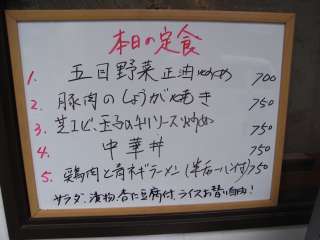 本日の定食
1. 五目野菜正油炒め 700
2. 豚肉のしょうが焼き 750
3. 芝エビ、玉子のチリソース炒め 750
4. 中華丼 750
5. 鶏肉と青ネギラーメン(半ライス付) 750
サラダ、漬物、杏仁豆腐付、ライスお替り自由!